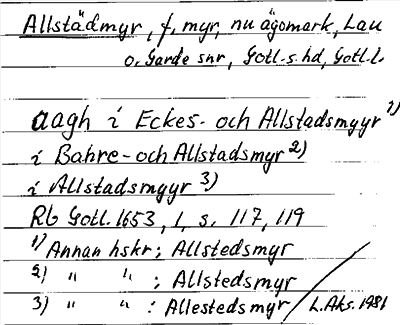 Allstädmyr, f. myr, nu ägomark, Lau
o. Garde snr, Gotl. s. hd, Gotl. l.
aagh i Eckes- och Allstadsmyyr 1)
i Bahre- och Allstadsmyr 2)
i Allstadsmyyr 3)
Rb Gotl. 1653, 1, s. 117, 119
1) Annan hskr; Allstedsmyr
2) " " ; Allstedsmyr
3) " " : Allestedsmyr / L.Aks. 1981